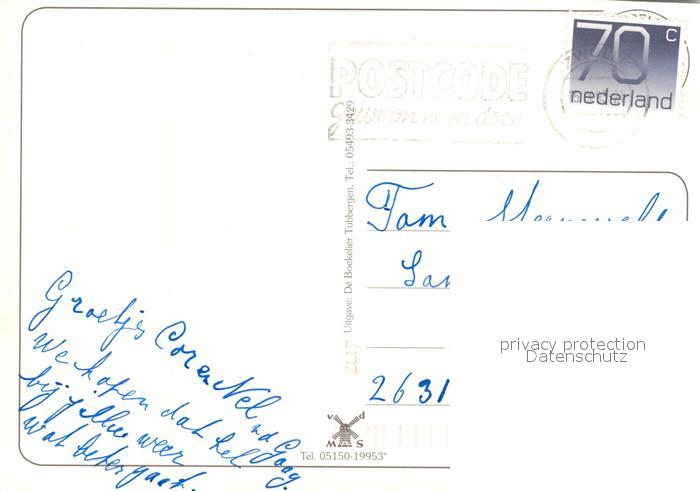 70 c
nederland
POSTCODE
Gewoon even doen
Uitgave: De Boekelier Tubbergen. Tel.: 05493-3429
ZL17
Fam
San
2631
privacy protection
Datenschutz
Groetjes Cor en Nel
We hopen dat het
bij jullie weer
wat beter gaat.
v d
M S
Tel. 05150-19953*